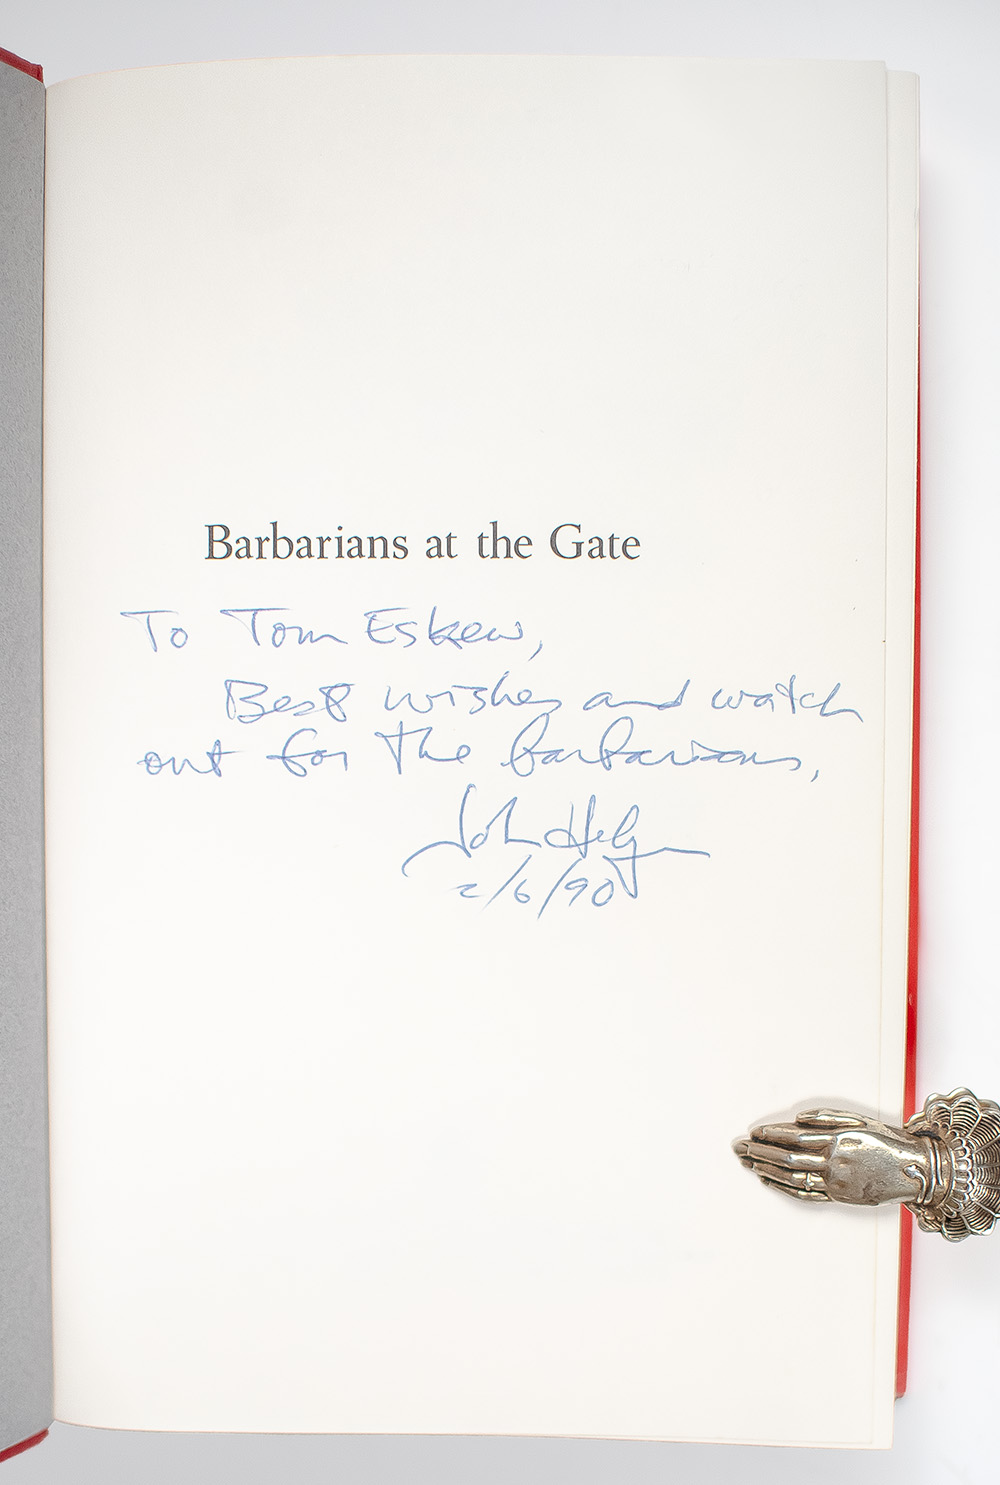 Barbarians at the Gate
To Tom Eskew,
Best wishes and watch
out for the barbarians,
John Helyar
2/6/90